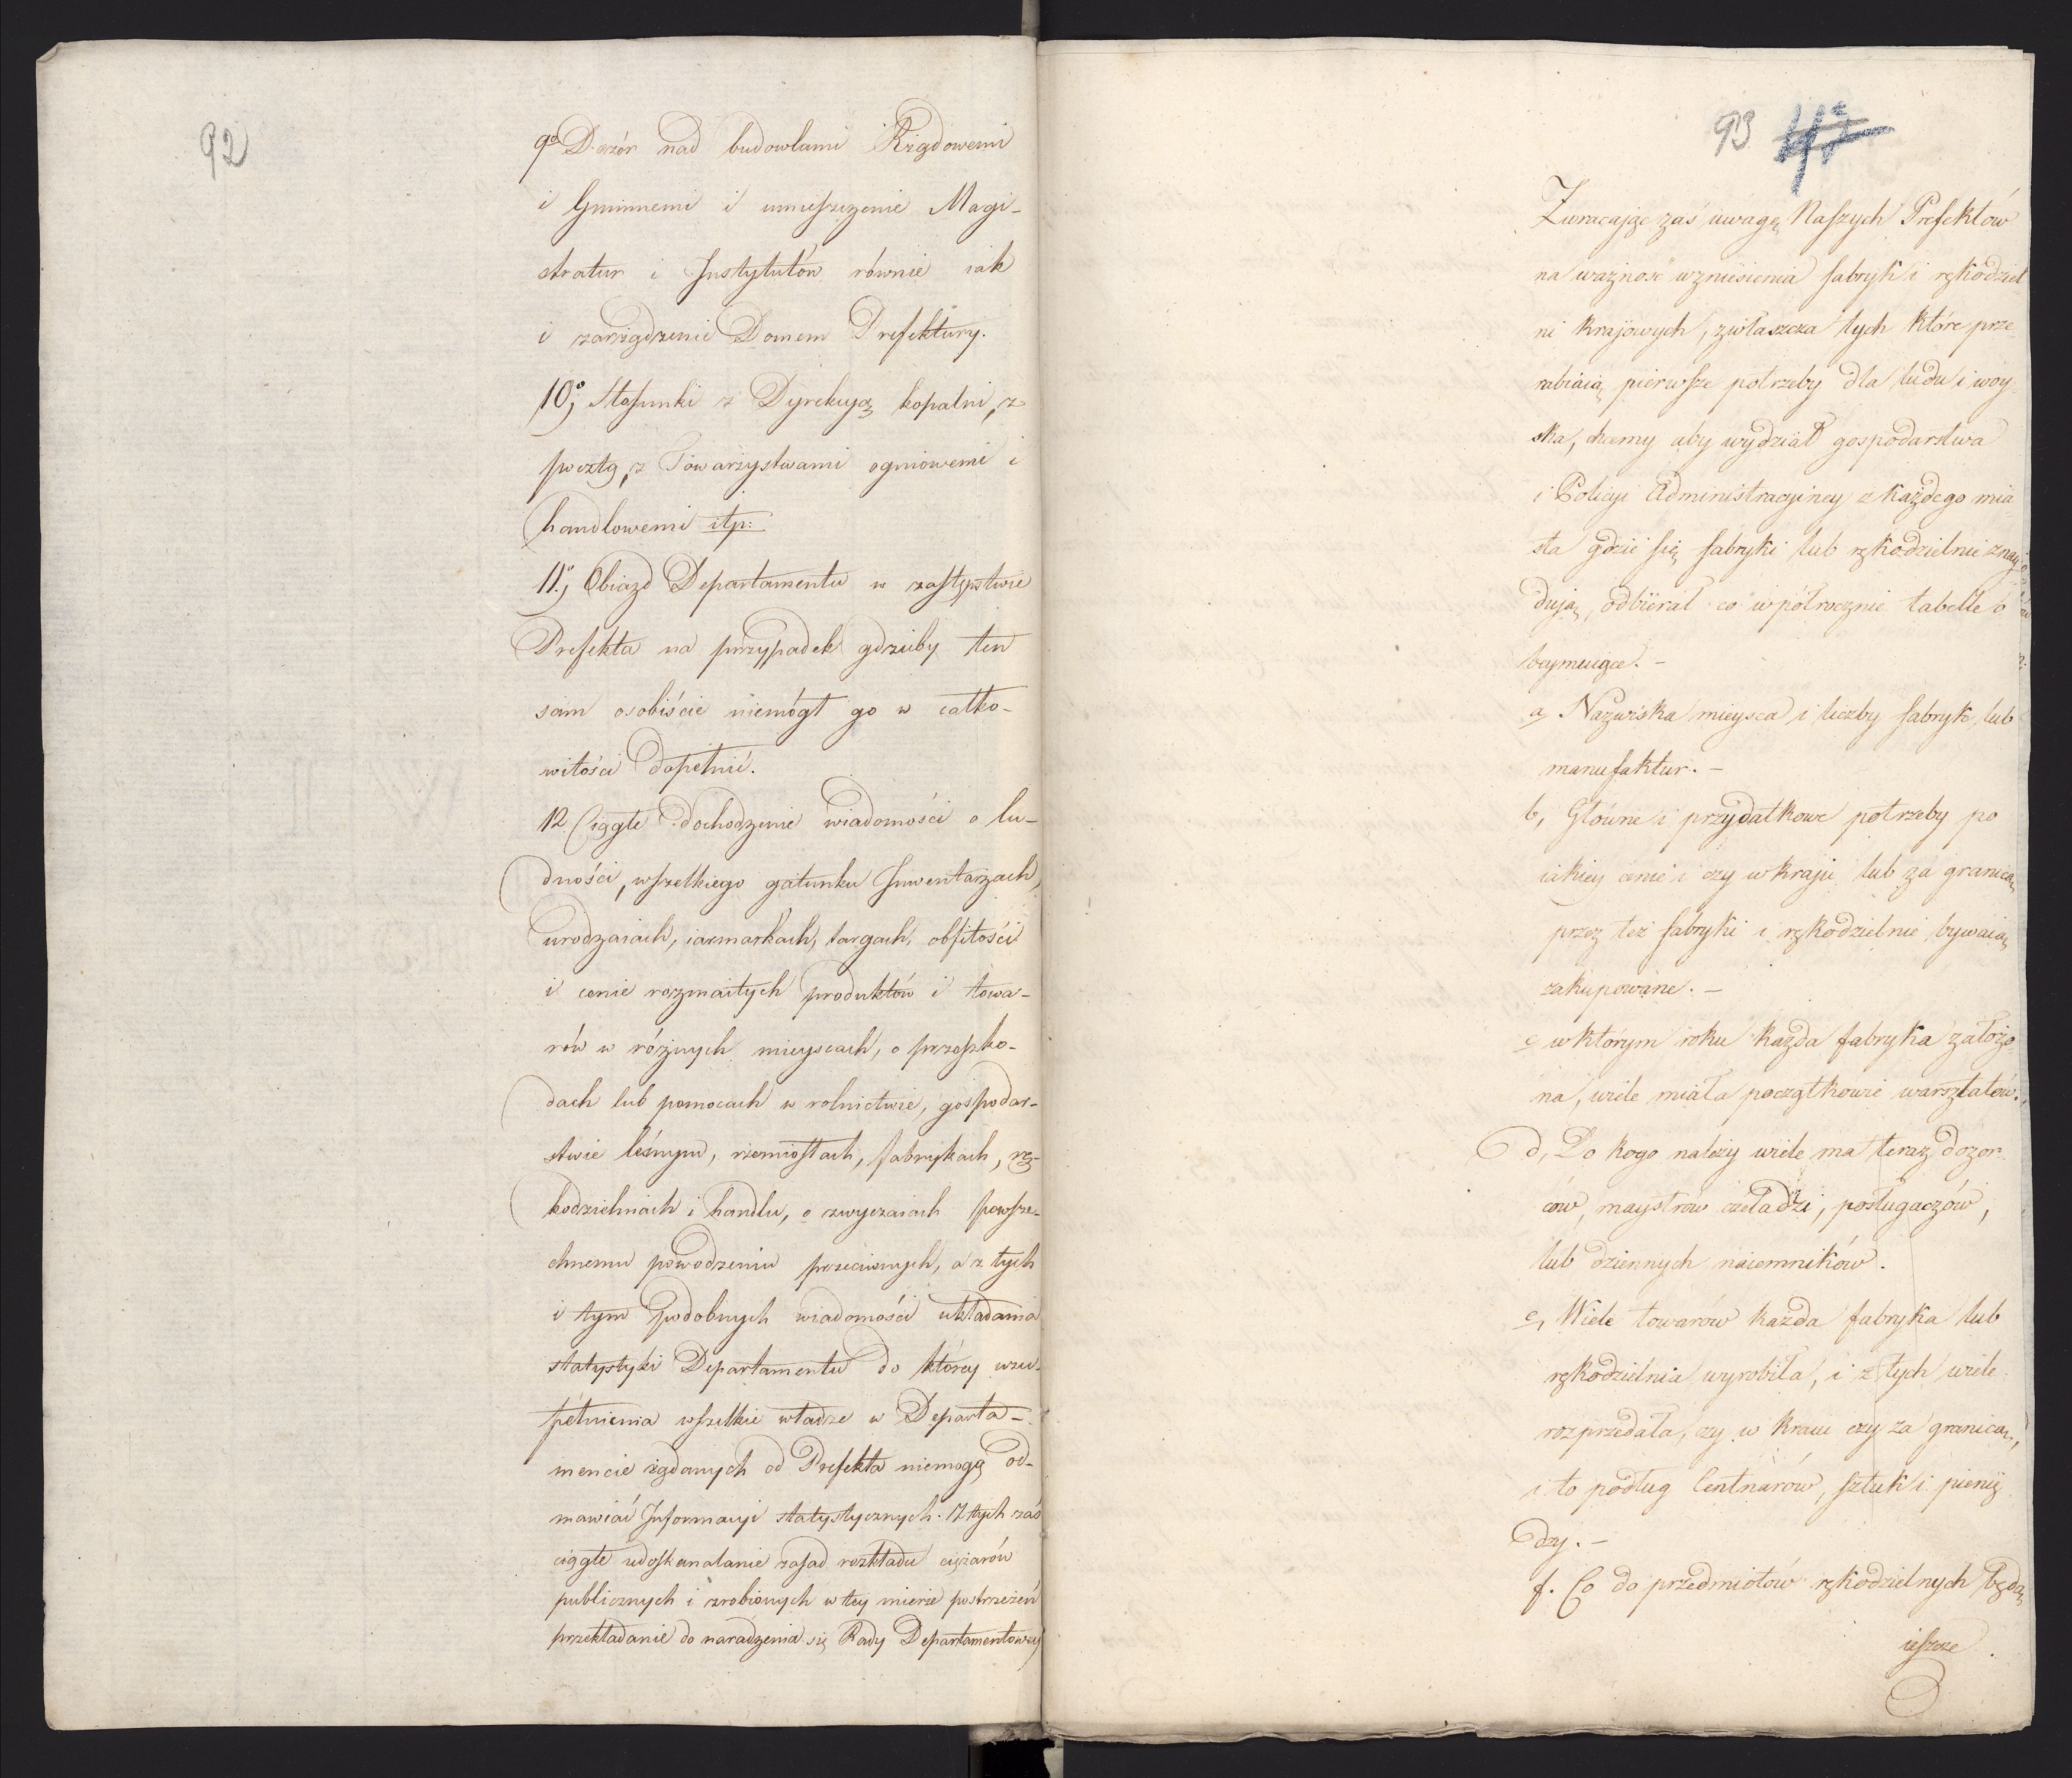 92
9o Dozór nad budowlami Rządowemi
i Gminnemi i umieszczenie Magi-
stratur i Instytutów równie iak
i zarządzenie Domem Prefektury.
10o, Stosunki z Dyrekcyą kopalni, z
pocztą, z Towarzystwami ogniowemi i
handlowemi itp:
11o, Obiazd Departamentu w zastępstwie
Prefekta na przypadek gdzieby ten
sam osobiście niemógł go w całko-
witości dopełnić.
12 Ciągłe dochodzenie wiadomości o lu-
dności, wszelkiego gatunku Inwentarzach,
urodzaiach, iarmarkach, targach, obfitości
i cenie rozmaitych produktów i towa-
rów w różnych mieyscach, o przeszko-
dach lub pomocach w rolnictwie, gospodar-
stwie leśnym, rzemiosłach, fabrykach, rę-
kodzielniach i handlu, o zwyczaiach powsze-
chnemu powodzeniu przeciwnych, a z tych
i tym podobnych wiadomości układania
statystyki Departamentu do którey uzu-
pełnienia wszelkie władze w Departa-
mencie żądanych od Prefekta niemogą od-
mawiać Informacyi statystycznych. Z tych zaś
ciągłe udoskonalanie zasad rozkładu ciężarów
publicznych i zrobionych w tey mierze postrzeżeń
przekładanie do naradzenia się Rady Departamentowey
93
Zwracając zaś uwagę Naszych Prefektów
na ważność wzniesienia fabryk i rękodziel
ni krajowych, zwłaszcza tych które prze
rabiaią pierwsze potrzeby dla ludu i woy
ska, chcemy aby wydział gospodarstwa
i Policyi Administracyiney z każdego mia
sta gdzie się fabryki lub rękodzielnie znay
dują, odbierał co wpółrocznie tabelle o
beymuiące. -
a, Nazwiska mieysca i liczby fabryk, lub
manufaktur. -
b, Główne i przydatkowe potrzeby po
iakiey cenie i czy w kraju lub za granicą
przez też fabryki i rękodzielnie bywaią
zakupowane. -
c w którym roku każda fabryka założo
na, wiele miała początkowie warsztatów.
d, Do kogo należy wiele ma teraz dozor
ców, maystrów czeladzi, posługaczów,
lub dziennych naiemników.
e, Wiele towarów każda fabryka lub
rękodzielnia wyrobiła, i z tych wiele
rozprzedała, czy w kraiu czy za granicą,
i to podług Centnarów, sztuk i pienię
dzy. -
f. Co do przedmiotów rękodzielnych będą
ieszcze